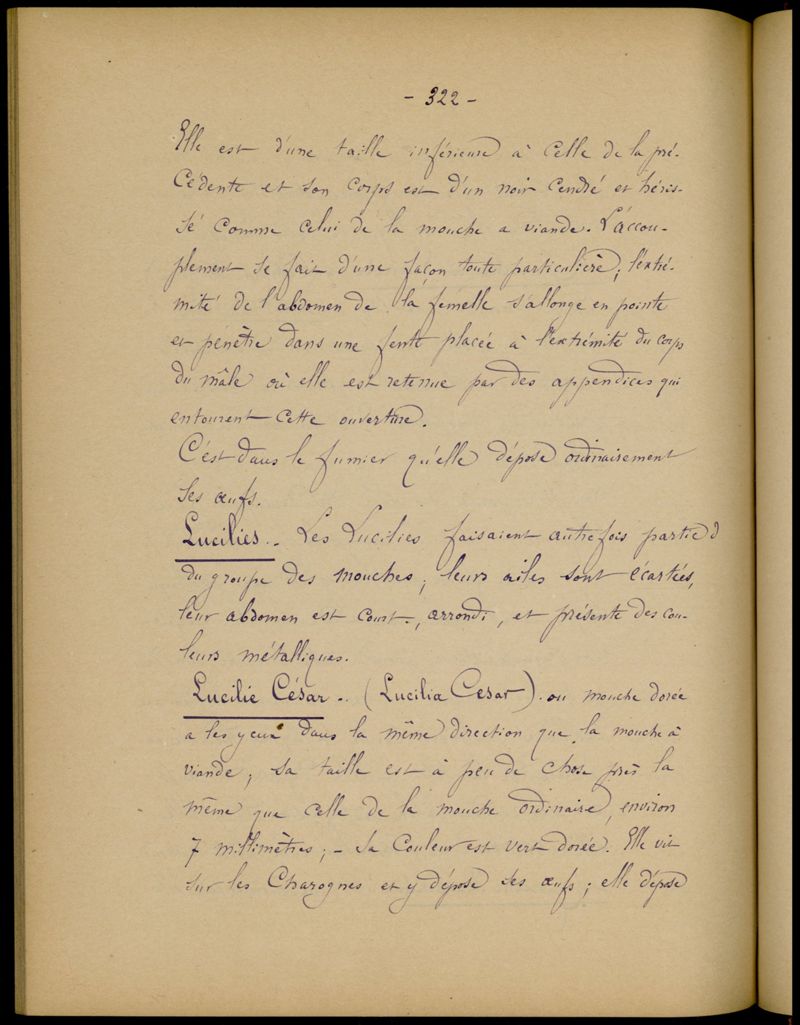 - 322 -
Elle est d'une taille inférieure à celle de la pré-
cédente et son corps est d'un noir cendré et héris-
sé comme celui de la mouche a viande. L'accou-
plement se fait d'une façon toute particulière; l'extré-
mité de l'abdomen de la femelle s'allonge en pointe
et pénètre dans une fente placée à l'extrémité du corps
du mâle où elle est retenue par des appendices qui
entourent cette ouverture.
C'est dans le fumier qu'elle dépose ordinairement
ses œufs.
Lucilies.. Les Lucilies faisaient autrefois partie d
du groupe des mouches; leurs ailes sont écartées,
leur abdomen est court, arrondi, et présente des cou-
leurs métalliques.
Lucilie César.. (Lucilia Cesar). ou mouche dorée
a les yeux dans la même direction que la mouche à
viande; sa taille est à peu de chose près la
même que celle de la mouche ordinaire, environ
7 millimètres; - sa couleur est vert dorée. Elle vit
sur les charognes et y dépose ses œufs; elle dépose